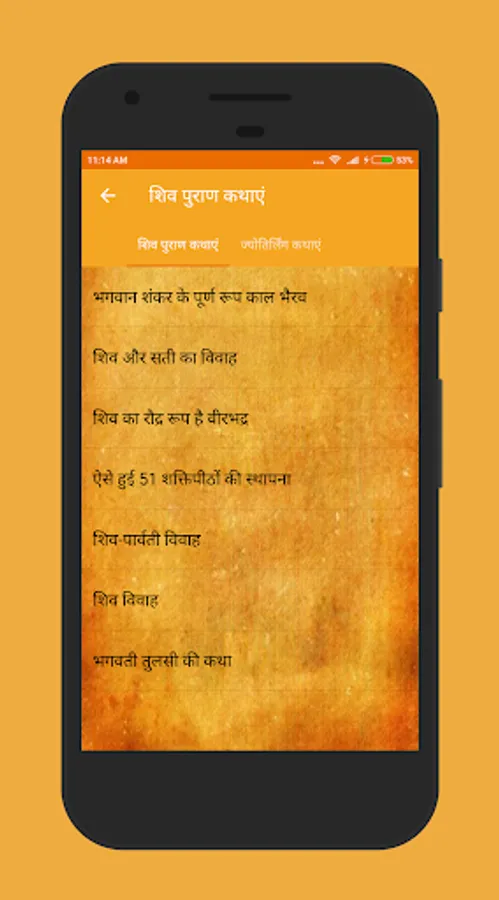 11:14 AM
83%
शिव पुराण कथाएं
शिव पुराण कथाएं ज्योतिर्लिंग कथाएं
भगवान शंकर के पूर्ण रूप काल भैरव
शिव और सती का विवाह
शिव का रौद्र रूप है वीरभद्र
ऐसे हुई 51 शक्तिपीठों की स्थापना
शिव-पार्वती विवाह
शिव विवाह
भगवती तुलसी की कथा